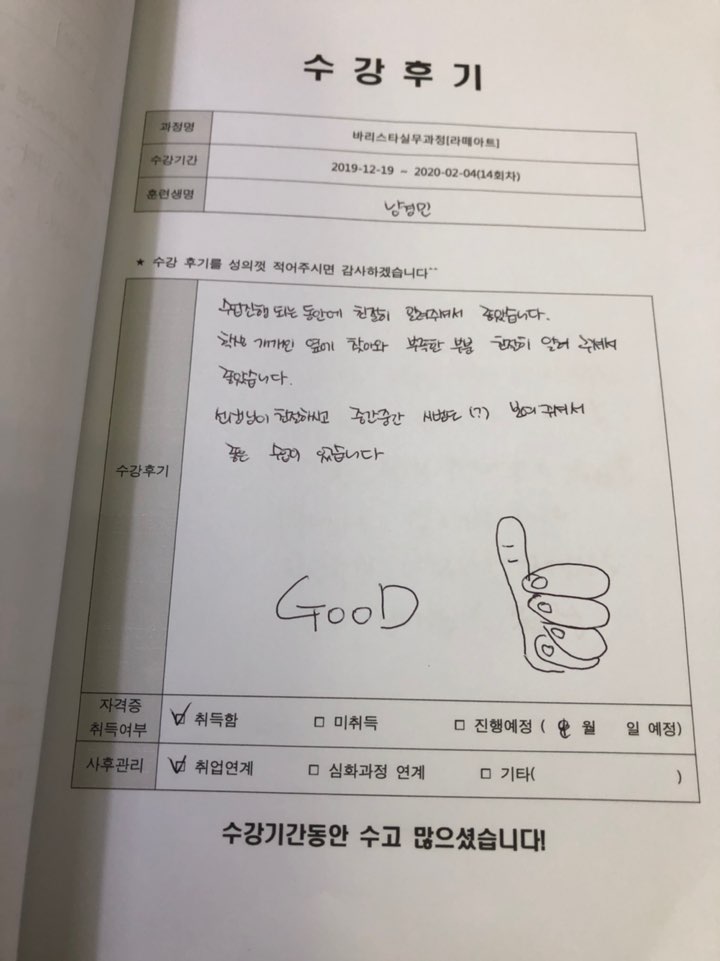 수 강 후 기
과정명 바리스타실무과정[라떼아트]
수강기간 2019-12-19 ~ 2020-02-04(14회차)
훈련생명
★ 수강 후기를 성의껏 적어주시면 감사하겠습니다^^
수업진행 되는 동안에 친절히 알려주셔서 좋았습니다.
학생 개개인 옆에 찾아와 부족한 부분 친절히 알려 주셔서
좋았습니다.
선생님이 친절하시고 중간중간 시범도 (?) 보여 주셔서
좋은 수업이 었습니다
수강후기
GOOD
자격증
취득여부 ☑ 취득함 □ 미취득 □ 진행예정 ( 월 일 예정)
사후관리 ☑ 취업연계 □ 심화과정 연계 □ 기타( )
수강기간동안 수고 많으셨습니다!